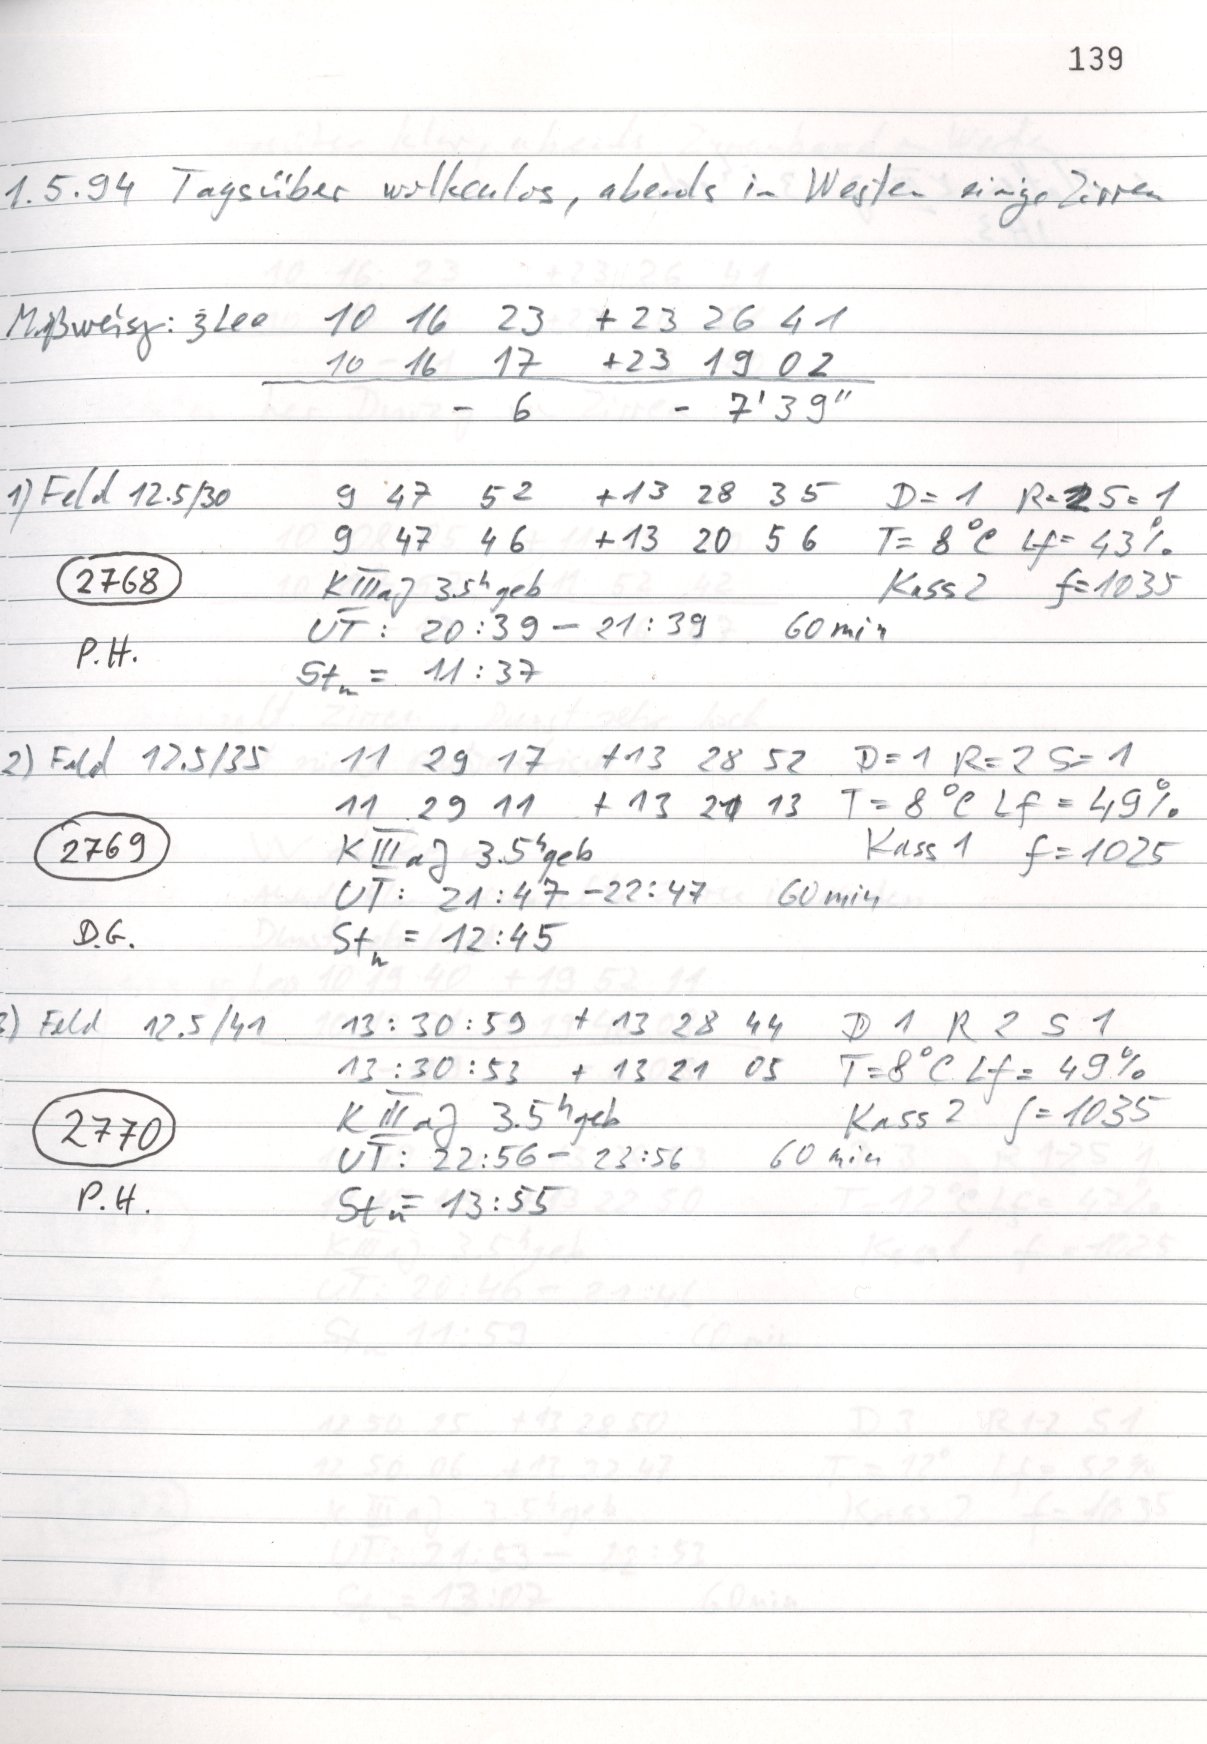 139
1.5.94 Tagsüber wolkenlos, abends im Westen einige Zirren
Mißweisg: ζ Leo 10 16 23 + 23 26 41
10 16 17 +23 19 02
- 6 - 7' 39"
1) Feld 12.5/30 9 47 52 +13 28 35 D = 1 R = 2 S = 1
9 47 46 +13 20 56 T = 8°C Lf = 43%
2768 K III aJ 3.5h geb Kass 2 f = 1035
UT: 20:39 – 21:39 60 min
P.H.
Stn = 11:37
2) Feld 12.5/35 11 29 17 +13 28 52 D = 1 R = 2 S = 1
11 29 11 + 13 21 13 T = 8°C Lf = 49%
2769 K III aJ 3.5h geb Kass 1 f = 1025
UT: 21:47 – 22:47 60 min
D.G. Stn = 12:45
3) Feld 12.5/41 13:30:59 + 13 28 44 D 1 R 2 S 1
13:30:53 + 13 21 05 T = 8°C Lf = 49%
2770 K III aJ 3.5h geb Kass 2 f = 1035
UT: 22:56 – 23:56 60 min
P.H. Stn = 13:55